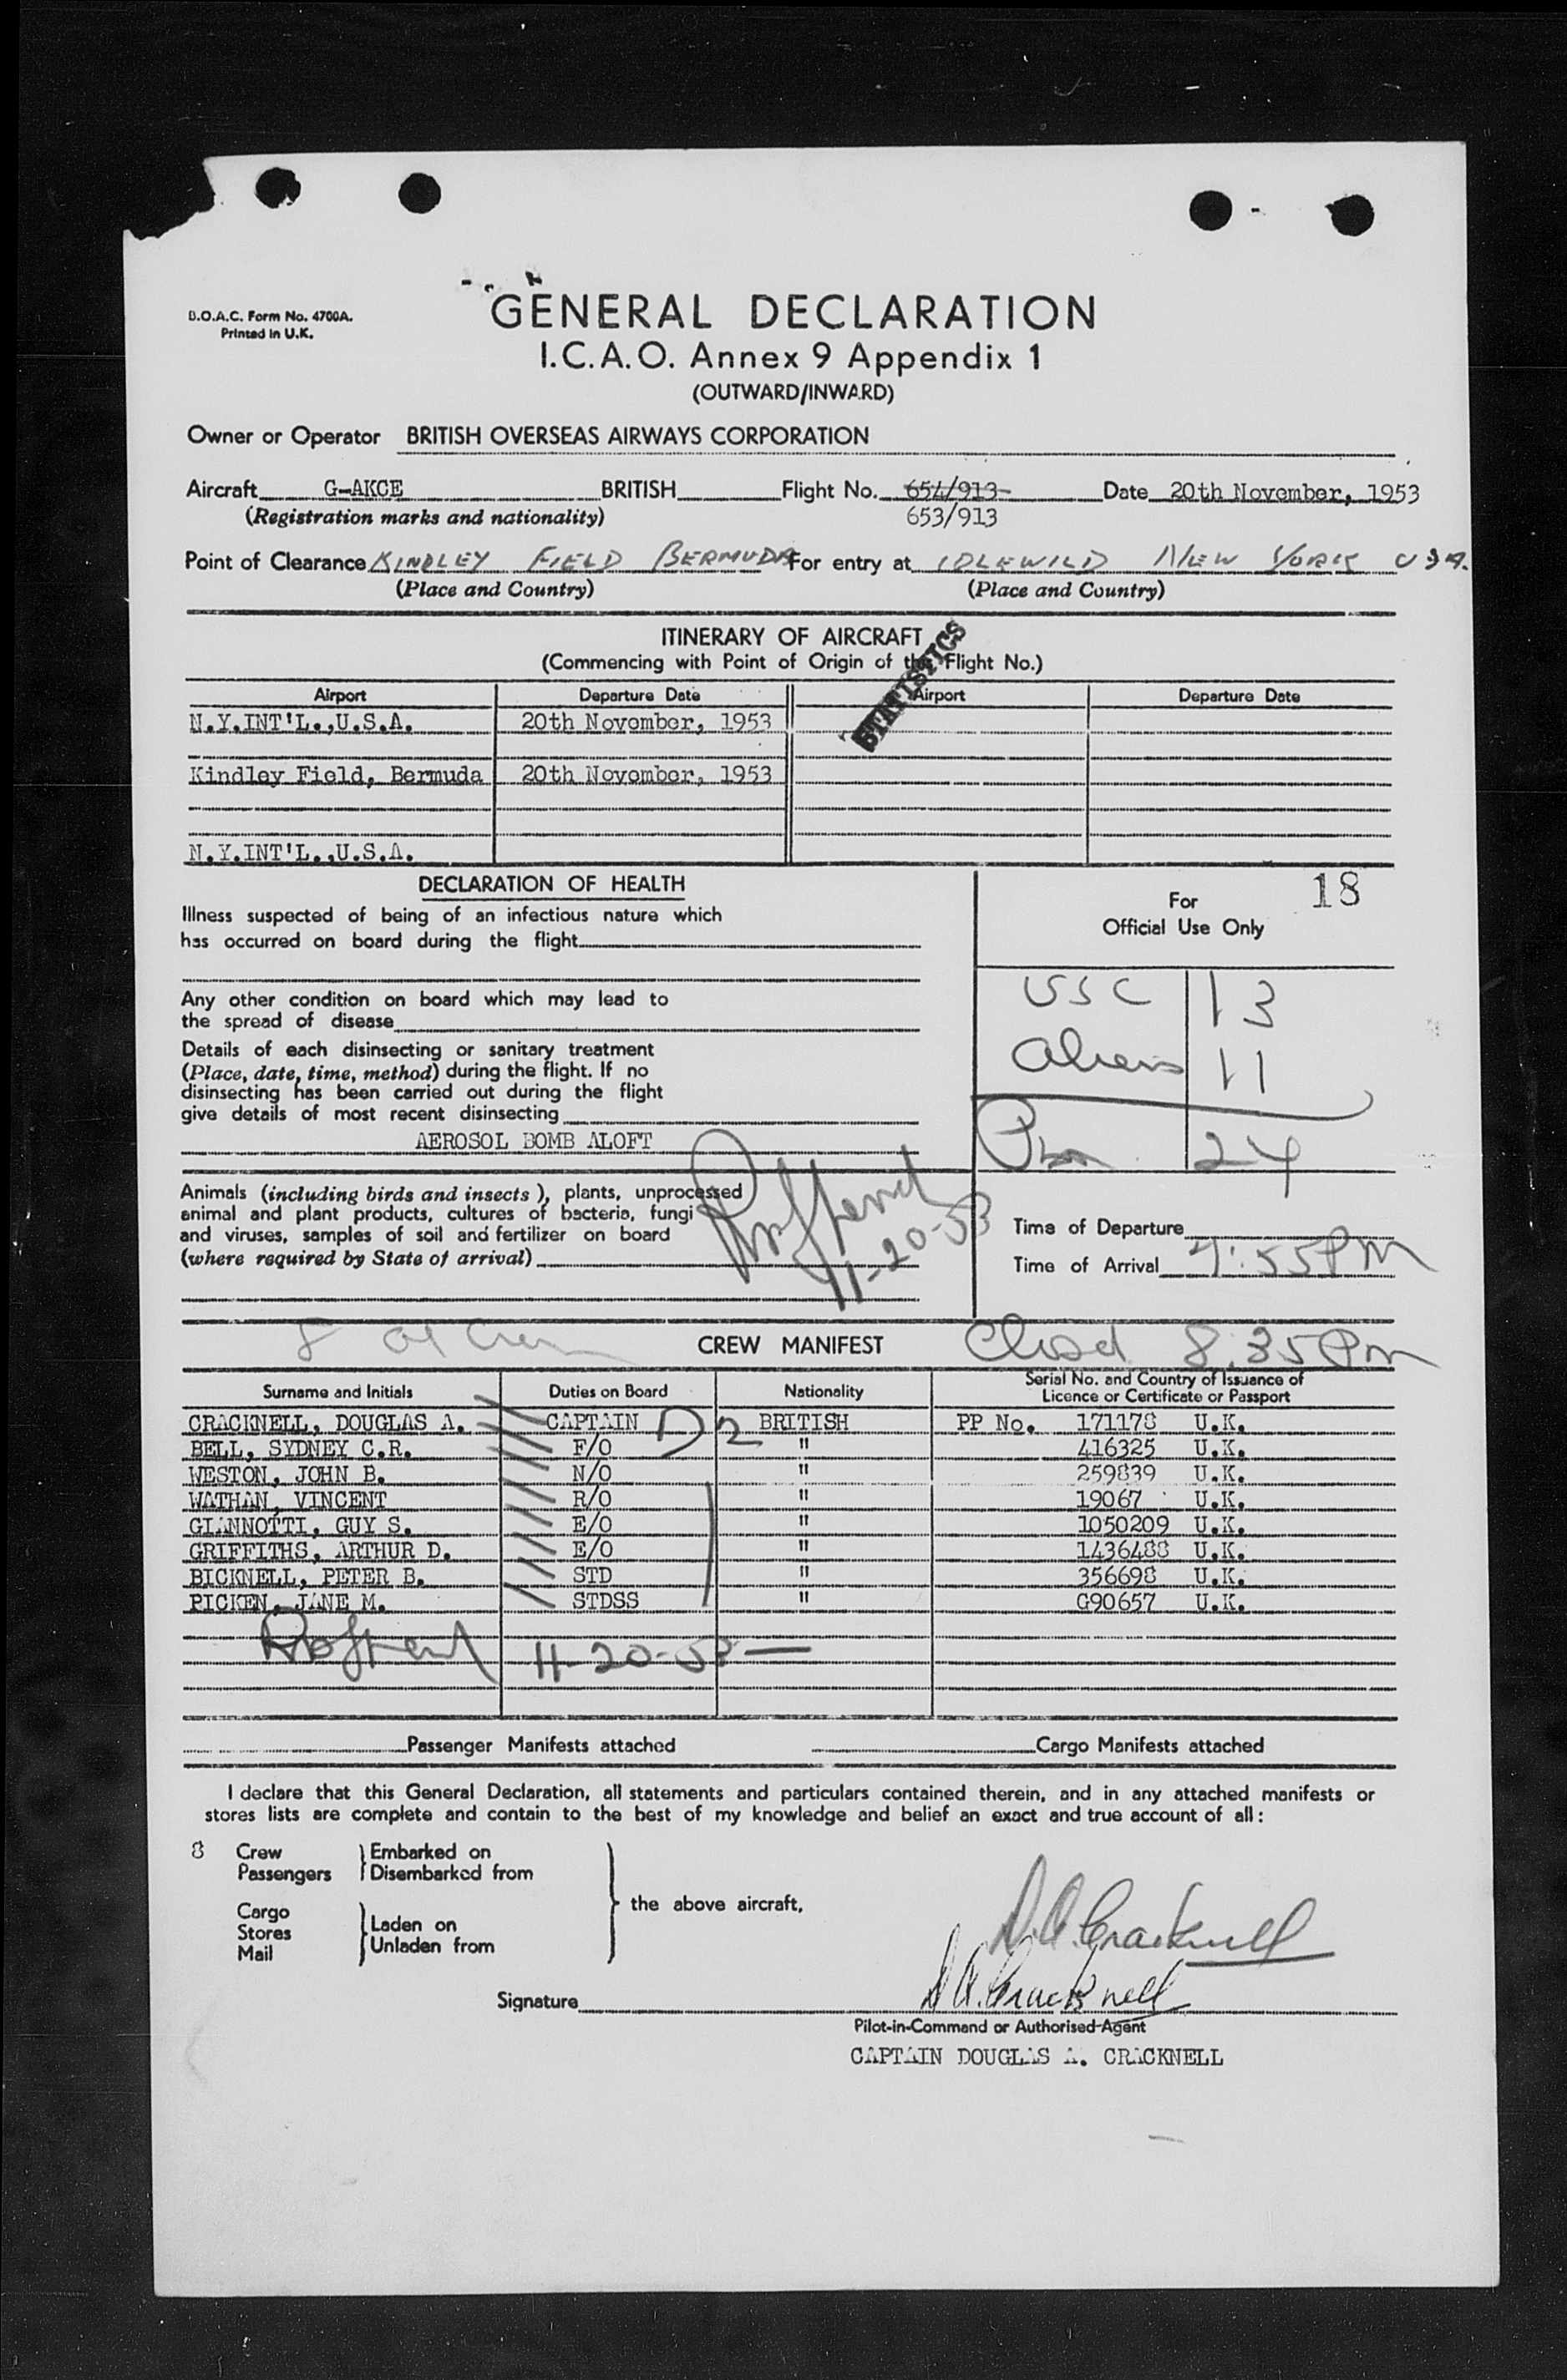 B.O.A.C. Form No. 4700A.
Printed in U.K.
GENERAL DECLARATION
I.C.A.O. Annex 9 Appendix 1
(OUTWARD/INWARD)
Owner or Operator BRITISH OVERSEAS AIRWAYS CORPORATION
Aircraft G-AKCE BRITISH Flight No. 654/913 Date 20th November, 1953
(Registration marks and nationality) 653/913
Point of Clearance KINDLEY FIELD BERMUDA For entry at IDLEWILD NEW YORK USA.
(Place and Country) (Place and Country)
ITINERARY OF AIRCRAFT
(Commencing with Point of Origin of the Flight No.)
STATISTICS
Airport Departure Date Airport Departure Date
N.Y.INT'L.,U.S.A. 20th November, 1953
Kindley Field, Bermuda 20th November, 1953
N.Y.INT'L.,U.S.A.
DECLARATION OF HEALTH
Illness suspected of being of an infectious nature which
has occurred on board during the flight
Any other condition on board which may lead to
the spread of disease
Details of each disinsecting or sanitary treatment
(Place, date, time, method) during the flight. If no
disinsecting has been carried out during the flight
give details of most recent disinsecting
AEROSOL BOMB ALOFT
Animals (including birds and insects), plants, unprocessed
animal and plant products, cultures of bacteria, fungi
and viruses, samples of soil and fertilizer on board
(where required by State of arrival)
11-20-53
For 18
Official Use Only
USC 13
Aliens 11
24
Time of Departure
Time of Arrival 7:55PM
8 CREW MANIFEST Closd 8.35 Pm
Surname and Initials Duties on Board Nationality Serial No. and Country of Issuance of
Licence or Certificate or Passport
CRACKNELL, DOUGLAS A. CAPTAIN D2 BRITISH PP No. 171178 U.K.
BELL, SYDNEY C.R. F/O " 416325 U.K.
WESTON, JOHN B. N/O " 259839 U.K.
WATHAN, VINCENT R/O " 19067 U.K.
GIANNOTTI, GUY S. E/O " 1050209 U.K.
GRIFFITHS, ARTHUR D. E/O " 1436488 U.K.
BICKNELL, PETER B. STD " 356698 U.K.
PICKEN, JANE M. STDSS " G90657 U.K.
11-20-53
Passenger Manifests attached Cargo Manifests attached
I declare that this General Declaration, all statements and particulars contained therein, and in any attached manifests or
stores lists are complete and contain to the best of my knowledge and belief an exact and true account of all:
8 Crew Embarked on
Passengers Disembarked from
the above aircraft,
Cargo
Stores Laden on
Mail Unladen from
D.A. Cracknell
Signature D A. Cracknell
Pilot-in-Command or Authorised Agent
CAPTAIN DOUGLAS A. CRACKNELL